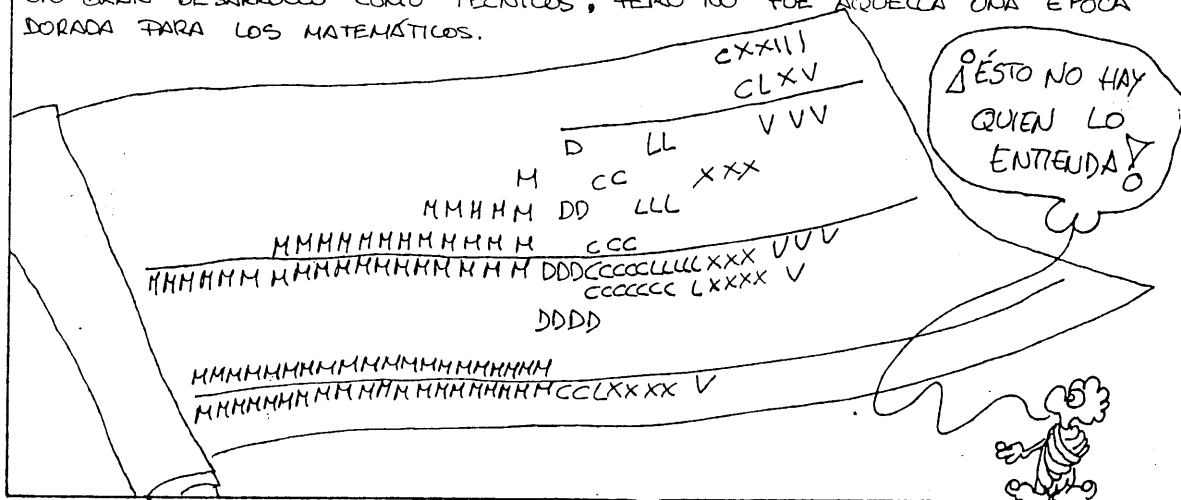 UN GRAN DESARROLLO COMO TÉCNICOS, PERO NO FUE AQUELLA UNA ÉPOCA
DORADA PARA LOS MATEMÁTICOS.
CXXIII
CLXV
D LL VVV
M CC XXX
MMMMM DD LLL
MMMMMMMMMMMM CCC
MMMMMM MMMMMMMMMMMM DDDCCCCCLLLLLXXX VVV
CCCCCCC LXXXX V
DDDD
MMMMMMMMMMMMMMMMMMMM
MMMMMMMMMMMMMMMMMMMMCCLXXXX V
¡ÉSTO NO HAY
QUIEN LO
ENTIENDA!